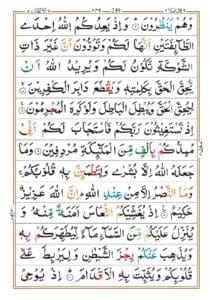 249
وَهُمْ يَنْظُرُوْنَ ۝ وَاِذْ يَعِدُكُمُ اللّٰهُ اِحْدَى
الطَّآئِفَتَيْنِ اَنَّهَا لَكُمْ وَتَوَدُّوْنَ اَنَّ غَيْرَ ذَاتِ
الشَّوْكَةِ تَكُوْنُ لَكُمْ وَيُرِيْدُ اللّٰهُ اَنْ
يُّحِقَّ الْحَقَّ بِكَلِمٰتِهٖ وَيَقْطَعَ دَابِرَ الْكٰفِرِيْنَ ۝
لِيُحِقَّ الْحَقَّ وَيُبْطِلَ الْبَاطِلَ وَلَوْ كَرِهَ الْمُجْرِمُوْنَ ۝
اِذْ تَسْتَغِيْثُوْنَ رَبَّكُمْ فَاسْتَجَابَ لَكُمْ اَنِّىْ
مُمِدُّكُمْ بِاَلْفٍ مِّنَ الْمَلٰٓئِكَةِ مُرْدِفِيْنَ ۝ وَمَا
جَعَلَهُ اللّٰهُ اِلَّا بُشْرٰى وَلِتَطْمَئِنَّ بِهٖ قُلُوْبُكُمْ
وَمَا النَّصْرُ اِلَّا مِنْ عِنْدِ اللّٰهِ اِنَّ اللّٰهَ عَزِيْزٌ
حَكِيْمٌ ۝ اِذْ يُغَشِّيْكُمُ النُّعَاسَ اَمَنَةً مِّنْهُ وَ
يُنَزِّلُ عَلَيْكُمْ مِّنَ السَّمَآءِ مَآءً لِّيُطَهِّرَكُمْ بِهٖ
وَيُذْهِبَ عَنْكُمْ رِجْزَ الشَّيْطٰنِ وَلِيَرْبِطَ عَلٰى
قُلُوْبِكُمْ وَيُثَبِّتَ بِهِ الْاَقْدَامَ ۝ اِذْ يُوْحِىْ